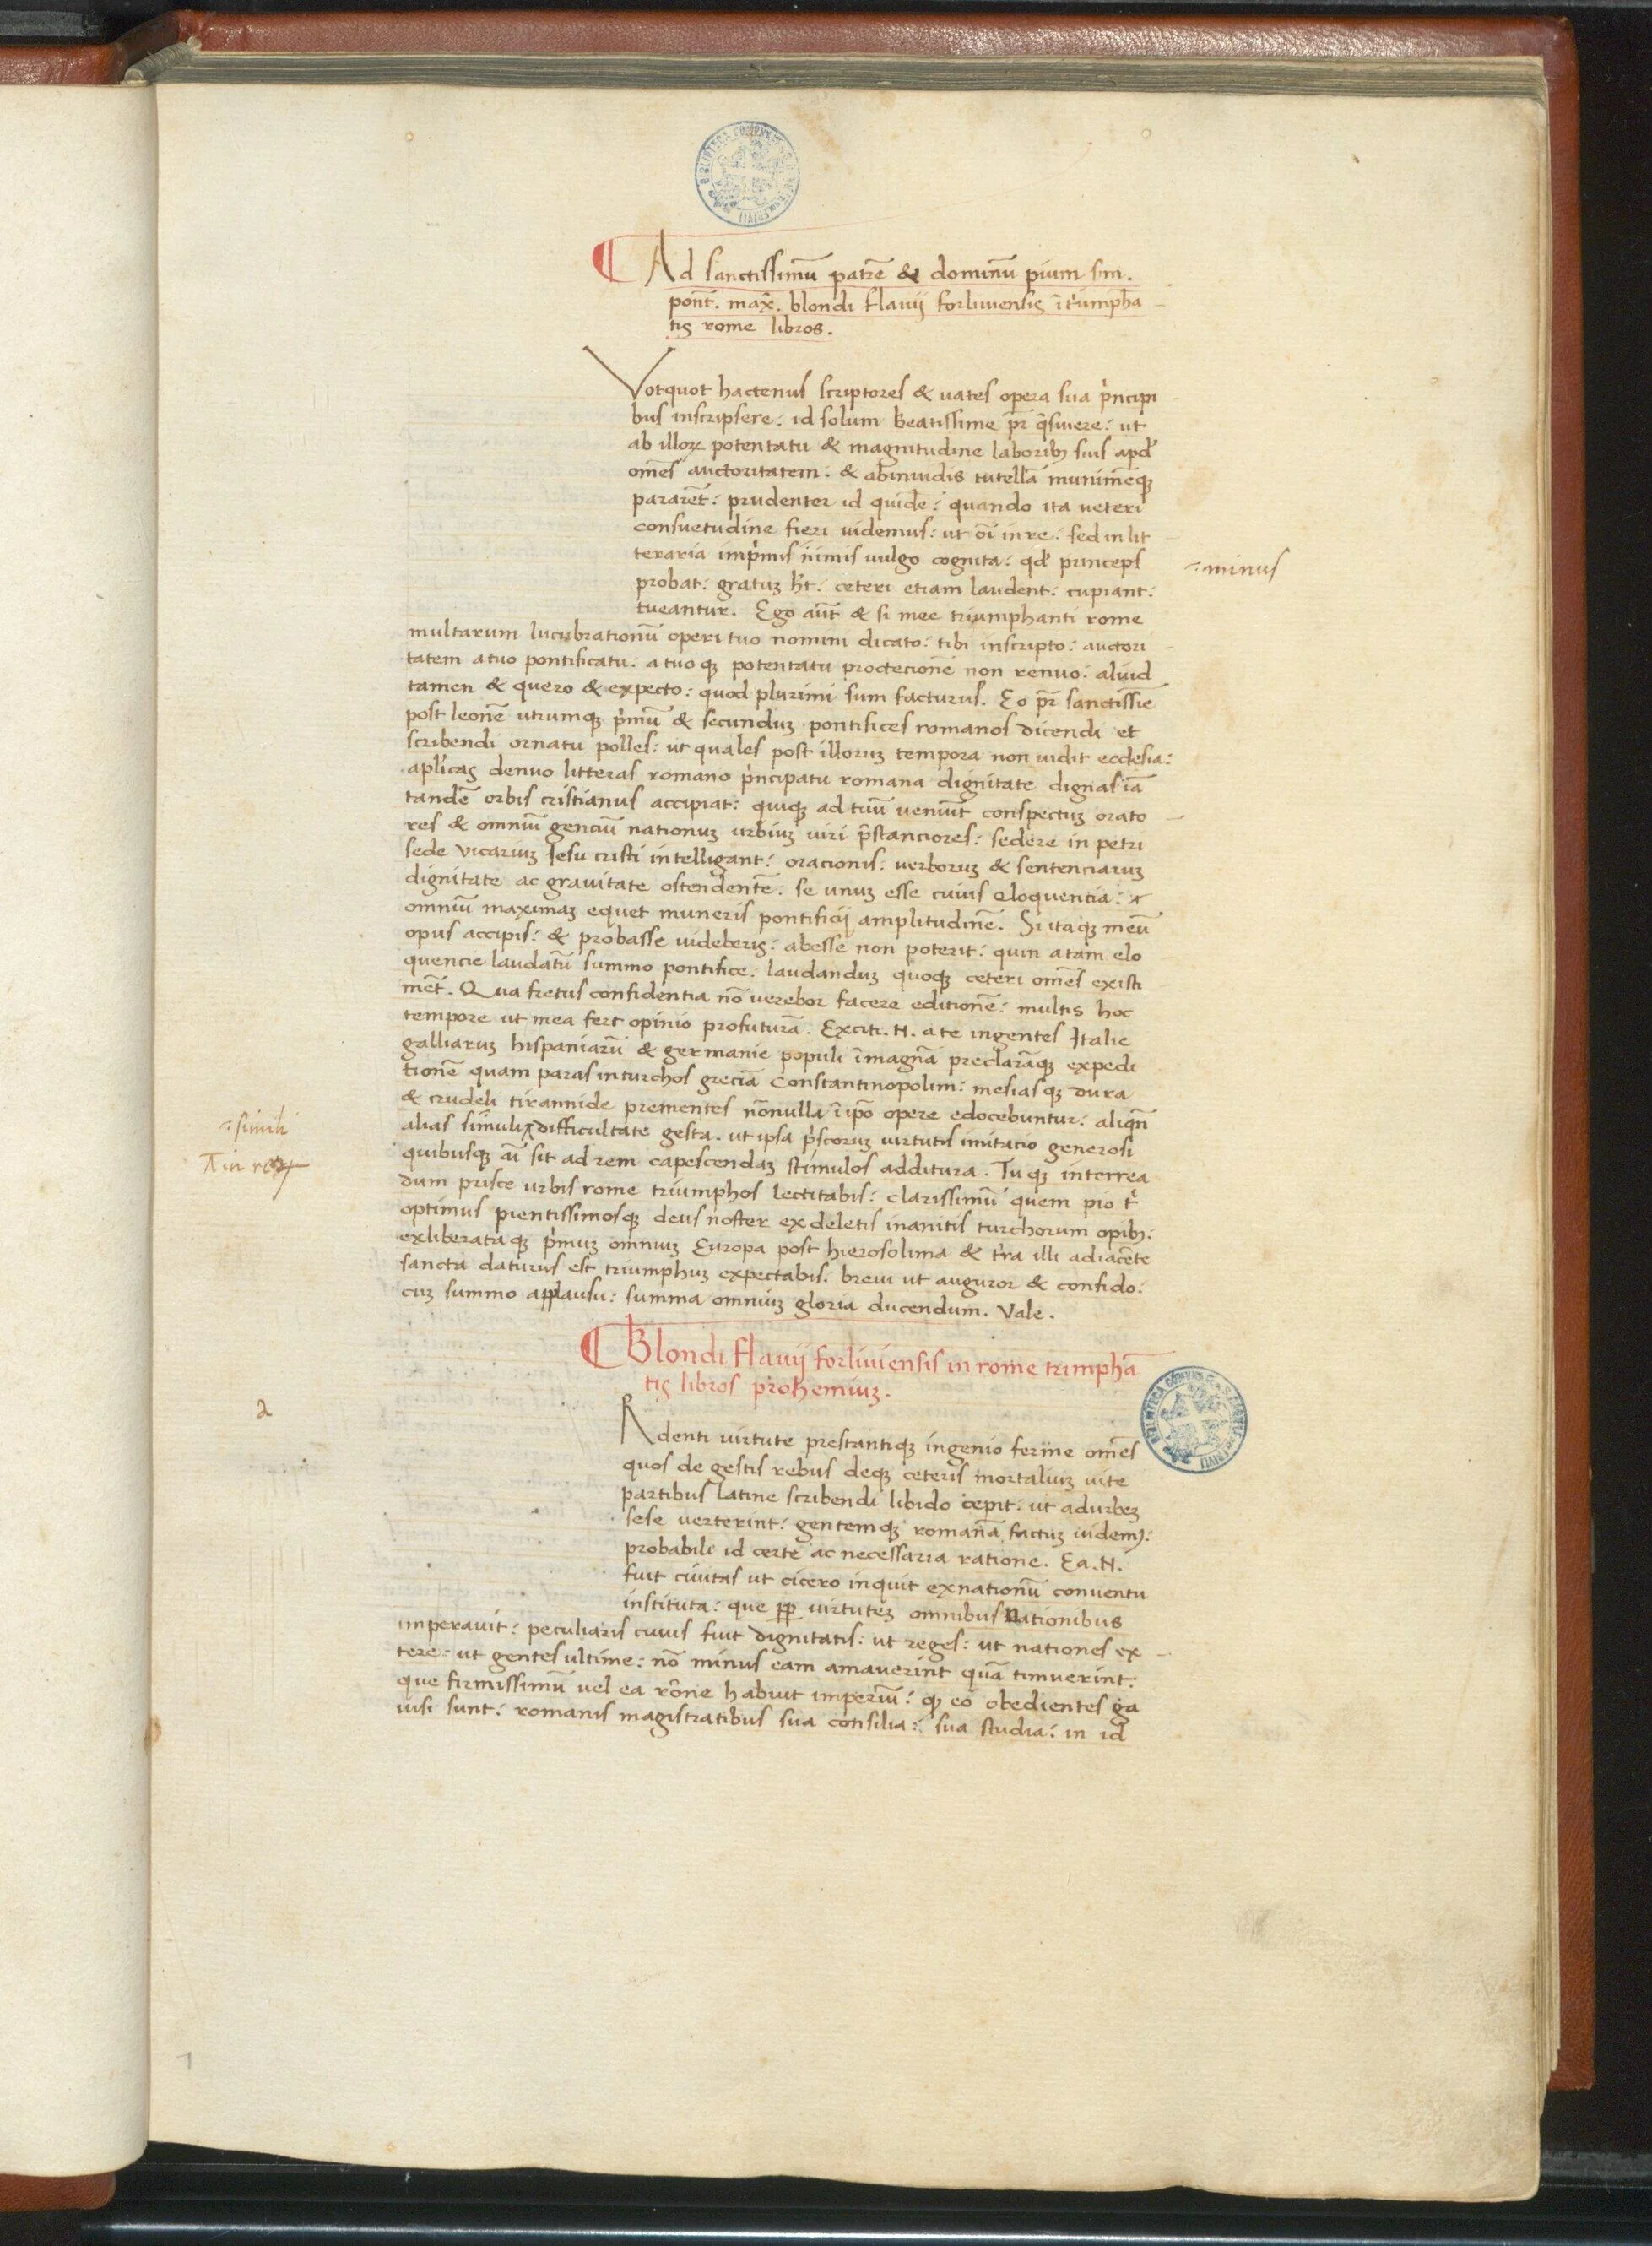 Ad sanctissimū patrē & dominū pium sm.
pont̄. max̄. blondi flauij forliuiensis ī triumpha
tis rome libros.
Votquot hactenus scriptores & uates opera sua prīncipi
bus inscripsere: id solum beatissime pr̄ q̄siuere: ut
ab illoꝝ potentatu & magnitudine laboribꝫ suis apd̓
omēs auctoritatem: & abinuidis tutellā munimēqꝫ
pararēt: prudenter id quidē: quando ita ueteri
consuetudine fieri uidemus: ut oī inre: sed in lit
teraria imprīmis nimis uulgo cognita: qd̓ princeps
probat: gratuꝫ hēt: ceteri etiam laudent: cupiant:
tueantur. Ego aūt & si mee triumphanti rome
multarum lucubrationū operi tuo nomini dicato: tibi inscripto: auctori
tatem atuo pontificatu: atuoqꝫ potentatu proctecionē non renuo: aliud
tamen & quero & expecto: quod plurimi sum facturus. Eo pr̄ sanctissīe
post leonē utrumqꝫ prīmū & secunduꝫ pontifices romanos dicendi et
scribendi ornatu polles: ut quales post illoruꝫ tempora non uidit ecclesia:
aplīcas denuo litteras romano prīncipatu romana dignitate dignas iā
tandē orbis cristianus accipiat: quiqꝫ ad tuū ueniūt conspectuꝫ orato
res & omniū genciū nationuꝫ urbiuꝫ uiri p̄stanciores: sedere in petri
sede vicariuꝫ Jesu cristi intelligant: oracionis: uerboruꝫ & sentenciaruꝫ
dignitate ac grauitate ostendentē: se unuꝫ esse cuius eloquencia:
omniū maximaꝫ equet muneris pontificij amplitudinē. Si itaqꝫ meū
opus accipis: & probasse uideberis: abesse non poterit: quin atam elo
quencie laudatū summo pontifice: laudanduꝫ quoqꝫ ceteri omēs existi
mēt. Qua fretus confidentia nō uerebor facere editionē: multis hoc
tempore ut mea fert opinio profuturā. Exciti. N. a te ingentes Italie
galliaruꝫ hispaniarū & germanie populi ī magnā preclarāqꝫ expedi
tionē quam paras inturchos greciā Constantinopolim: mesiasqꝫ dura
& crudeli tirannide prementes nōnulla ī ipō opere edocebuntur: aliqn̄
alias simuli difficultate gesta. ut ipsa prīscoruꝫ uirtutis imitacio generosi
quibusqꝫ aī sit ad rem capescendaꝫ stimulos additura. Tu qꝫ interrea
dum prisce urbis rome triumphos lectitabis: clarissimū quem pio t̓
optimus pientissimosqꝫ deus noster ex deletis inanitis turchorum opibꝫ:
exliberataqꝫ prīmuꝫ omniuꝫ Europa post hierosolima & tr̄a illi adiacēte
sancta daturus est triumphuꝫ expectabis. breui ut auguror & confido:
cuꝫ summo applausu: summa omniuꝫ gloria ducendum. Vale.
Blondi flauij forliuiensis in rome trimphā
tis libros prohemiuꝫ.
Rdenti uirtute prestantiqꝫ ingenio ferme omēs
quos de gestis rebus deqꝫ ceteris mortaliuꝫ uite
partibus latine scribendi libido cepit: ut adurbeꝫ
sese uerterint: gentemqꝫ romanā factuꝫ uidemꝫ:
probabili id certe ac necessaria ratione. Ea. N.
fuit ciuitas ut cicero inquit exnationū conuentu
instituta: que ꝓp uirtuteꝫ omnibus nationibus
imperauit: peculiaris cuius fuit dignitatis: ut reges: ut nationes ex
tere: ut gentes ultime: nō minus eam amauerint quā timuerint:
que firmissimū uel ea rōne habuit imperiū: qꝫ eo obedientes ga
uisi sunt: romanis magistratibus sua consilia: sua studia: in id
minus
simili
in re
a